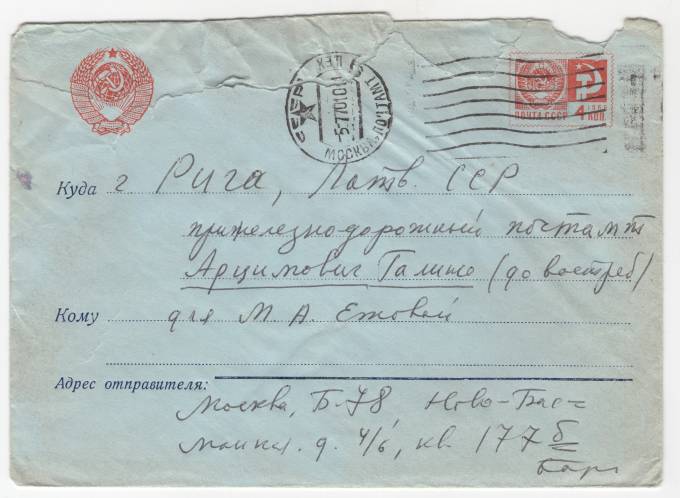 МОСКВА ПОЧТАМТ
5-7 70 10
ПОЧТА СССР
1966
4 КОП.
Куда г Рига, Латв. ССР
прижелезнодорожний почтамт
Арцимович Галине (до востреб)
Кому для М. А. Ежовой
Адрес отправителя:
Москва, Б-78 Ново-Бас=
манная. д. 4/6, кв. 177 б